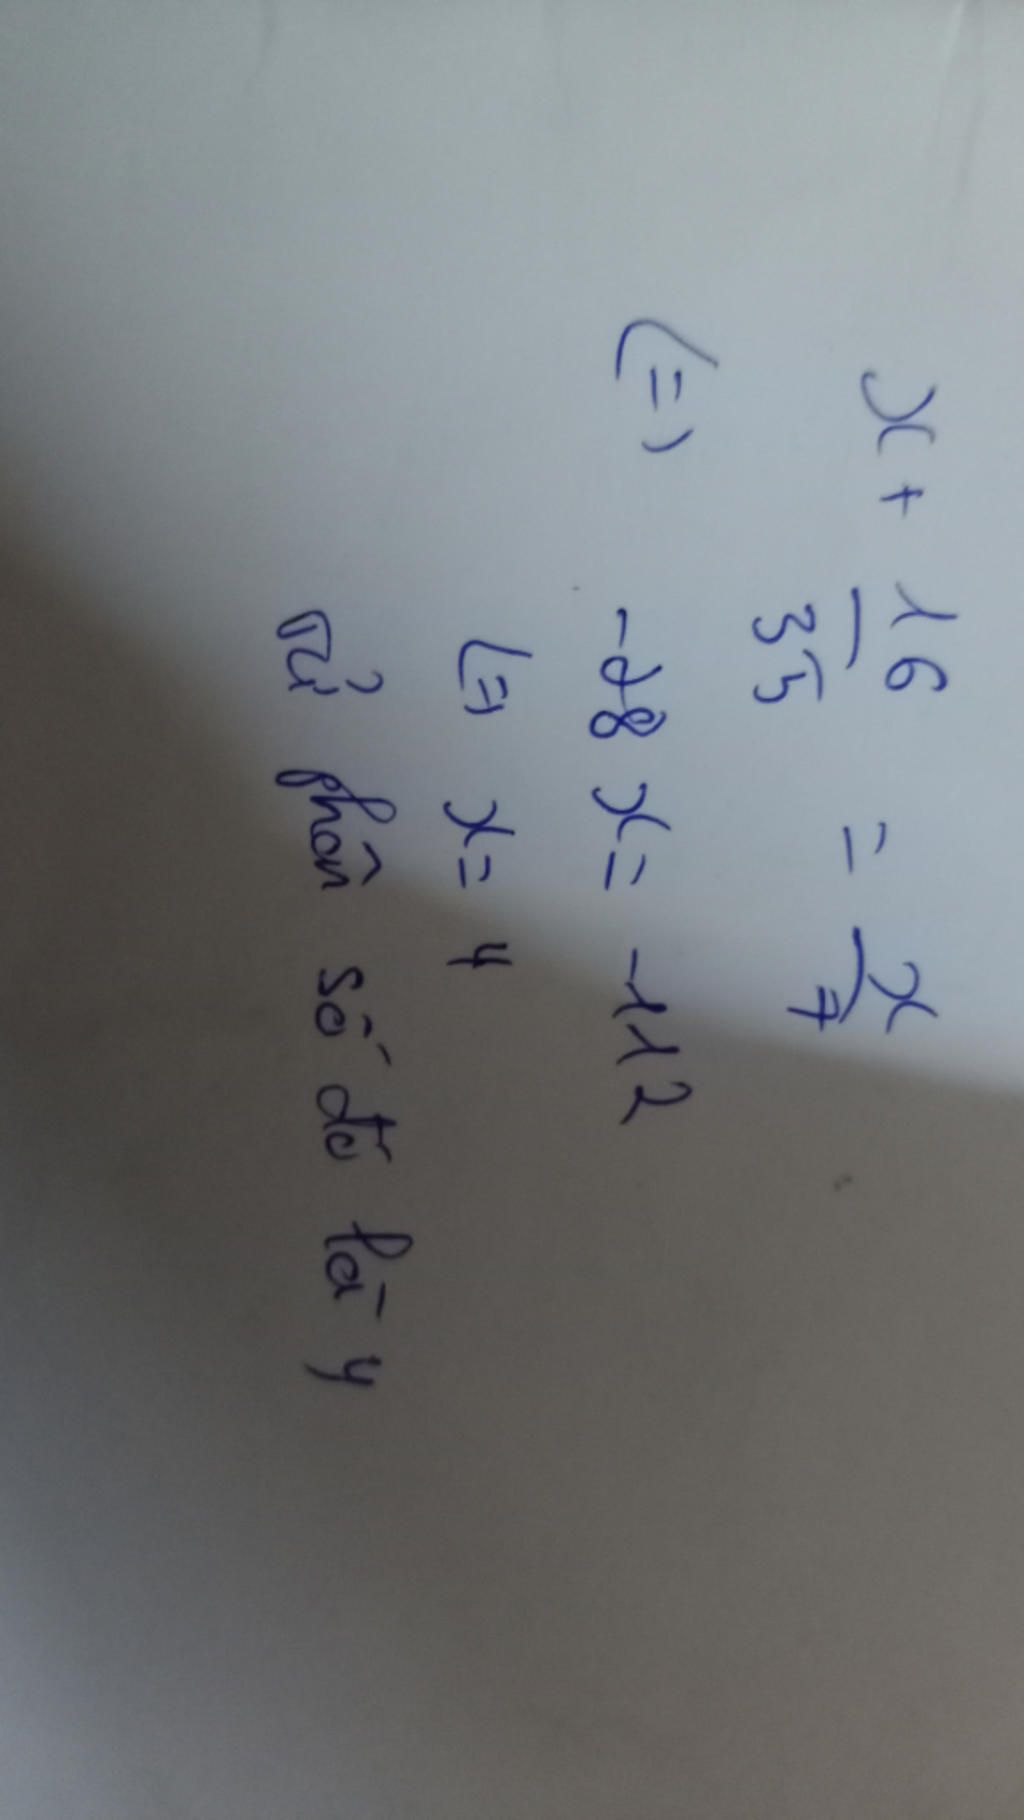 x + 16 = x
35 7
<=> -28 x = -112
<=> x = 4
tử phân số đó là 4